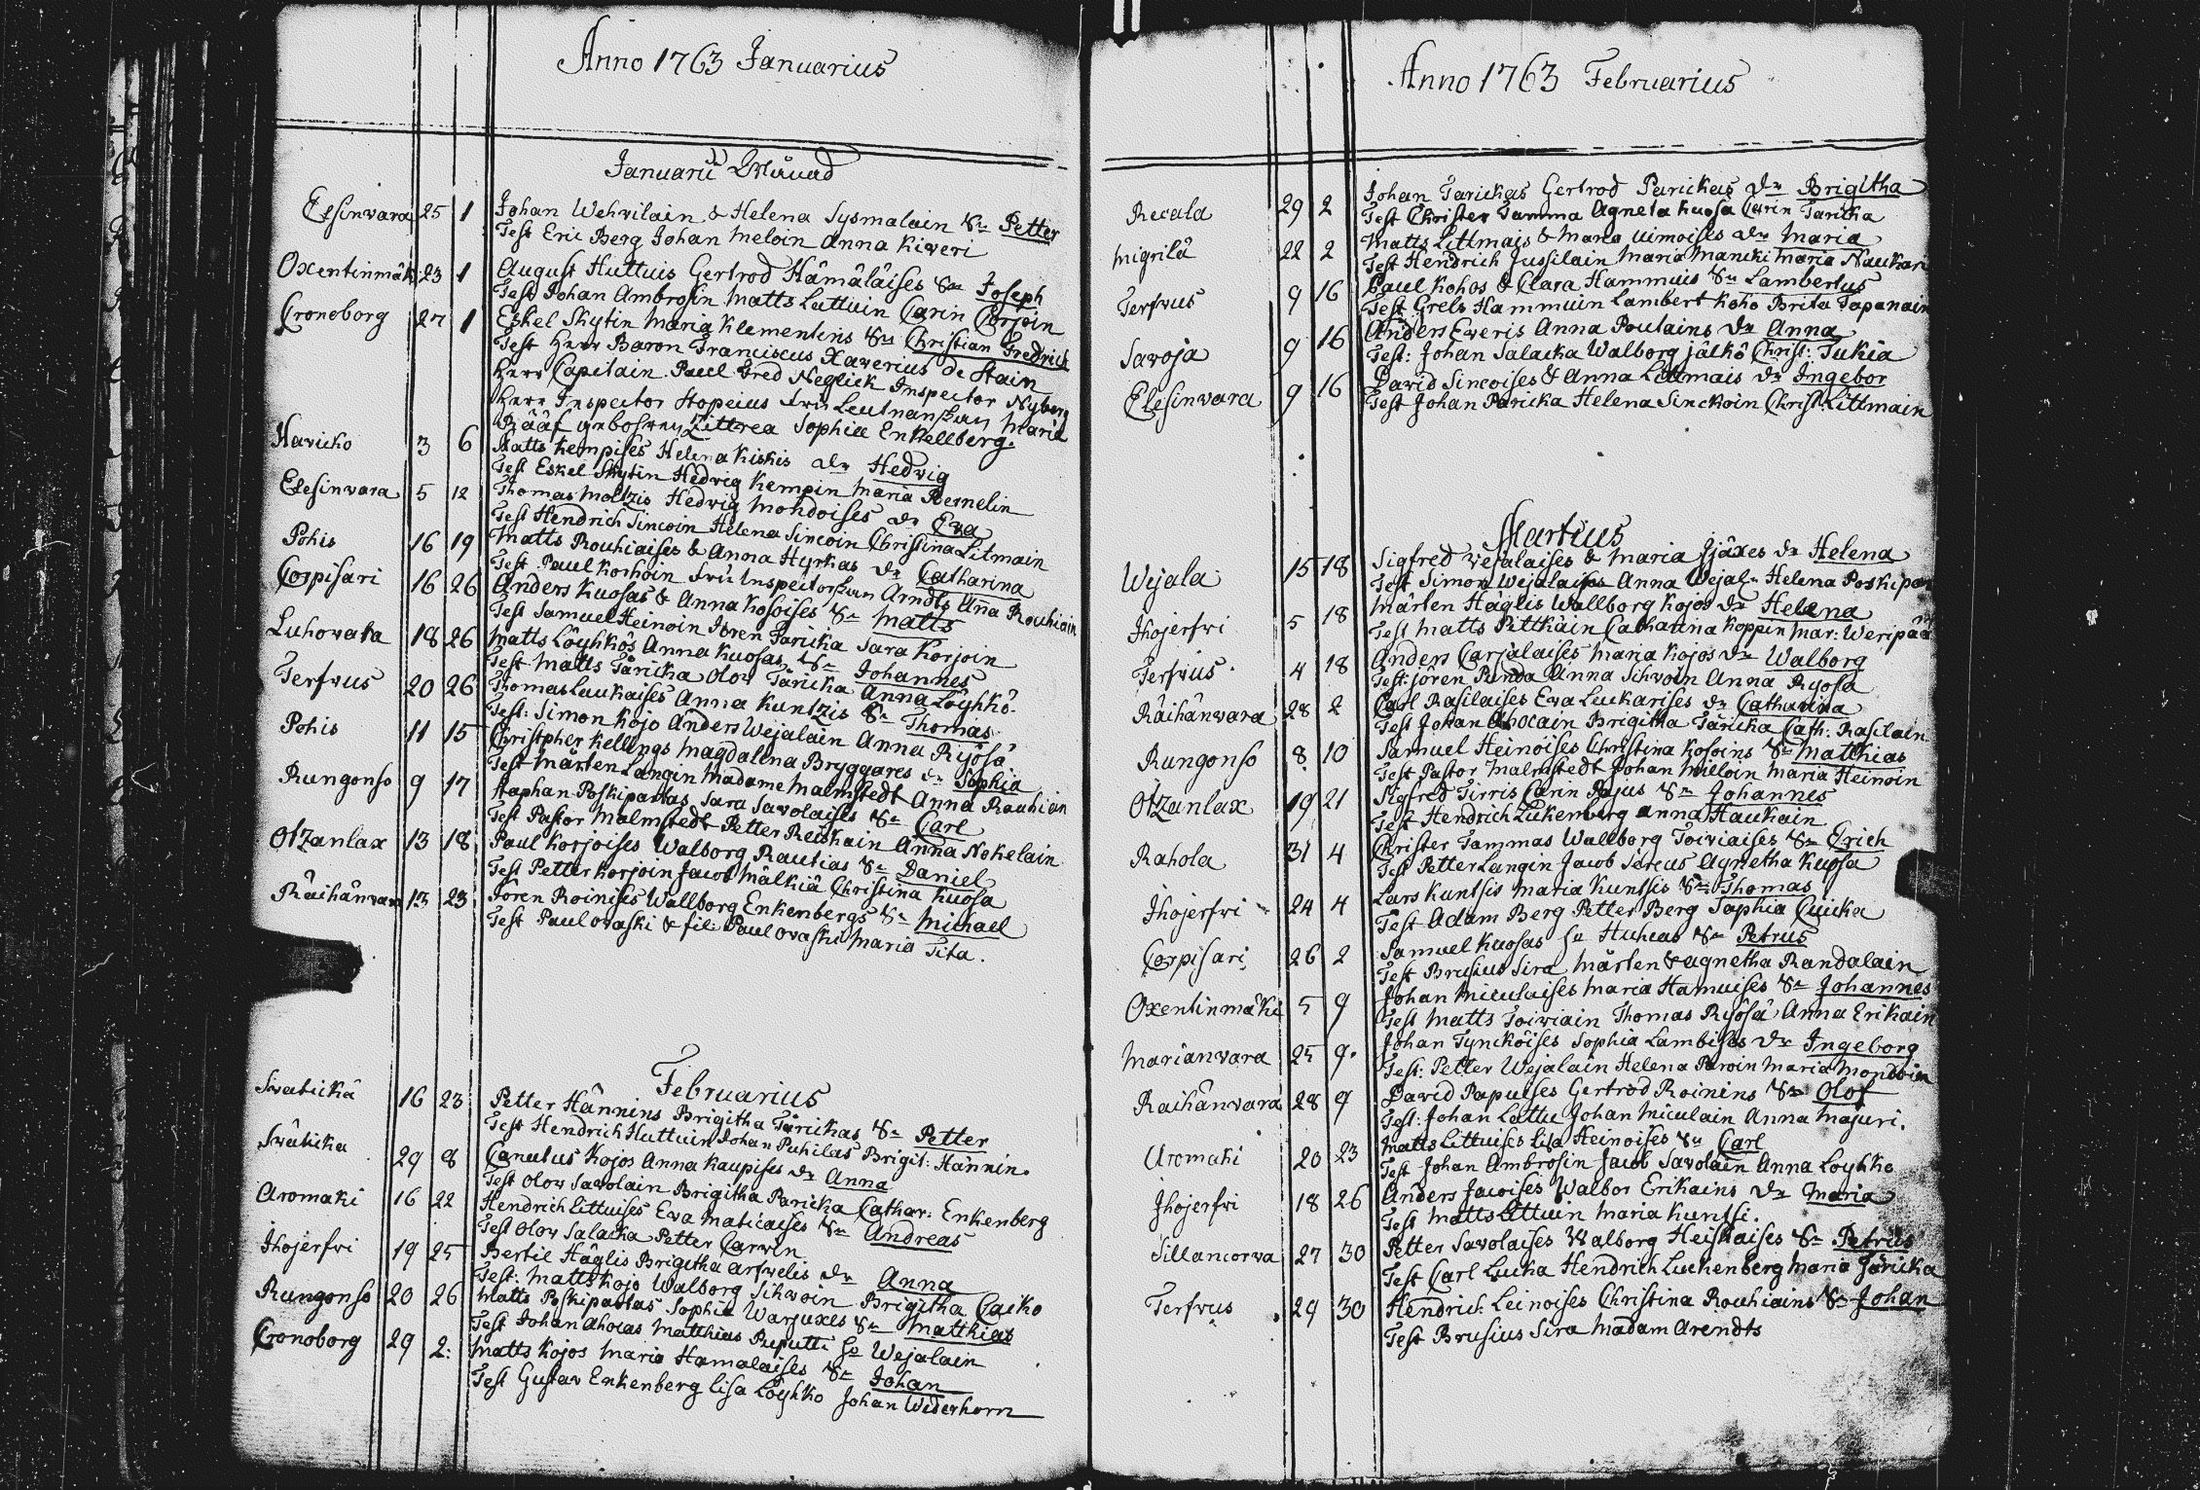 Anno 1763 Januarius
Januarii Månad
Elesinvara 25 1 Johan Wehvilain & Helena Sysmalain Sn Petter
Test Eric Berg Johan Meloin Anna Kiveri
Oxentinmäk 23 1 August Huttuis Gertrod Hämäläises Sn Joseph
Test Johan Ambrosin Matts Luttuin Carin Corjoin
Cronoborg 27 1 Eskel Skytin Maria Klementins Sn Christian Fredrich
Test Herr Baron Franciscus Xaverius de Stain
Herr Capitain Paul Fred Neglick Inspector Nyberg
Herr Inspector Hopeius Fru Leutnanskan Maria
Rääf Littrea Sophia Enkellberg.
Havicko 3 6 Matts Kempises Helena Kiskis dr Hedvig
Test Eskel Skytin Hedveg Kempin Maria Bernelin
Elesinvara 5 12 Thomas Moltzis Hedvig Mohdoises dr Eva
Test Hendrich Sincoin Helena Sincoin Christina Litmain
Pohis 16 19 Matts Rouhiaises & Anna Hyrkas dr Catharina
Test Paul Korhoin Fru Inspectorskan Arndts Anna Rouhiain
Corpisari 16 26 Anders Kuosas & Anna Kosoises Sn Matts
Test Samuel Heinoin Jören Paricka Sara Korjoin
Luhovaka 18 26 Matts Löyhkös Anna Kuosas Sn Johannes
Test Matts Täricka Olov Täricka Anna Löyhkö.
Terfvus 20 26 Thomas Laukaises Anna Kuntzis Sn Thomas
Test: Simon Kojo Anders Wejalain Anna Ryösä
Pohis 11 15 Christpher Kellngs Magdalena Bryggares dr Sophia
Test Mårten Langin Madame Malmstedt Anna Rauhian
Rungonso 9 17 Staphan Poskiparlas Sara Savolaises Sn Carl
Test Pastor Malmstedt Petter Reiskain Anna Nokelain
Otzanlax 13 18 Paul Korjoises Walborg Rautias Sn Daniel
Test Petter Korjoin Jacob Mälkiä Christina Kuosa
Räihänvara 13 23 Jören Roinises Wallborg Enkenbergs Sn Michael
Test Paul Ovaski & fil Paul Ovaski Maria Tita.
Februarius
Svatickä 16 23 Petter Hännins Brigitha Tärickas Sn Petter
Test Hendrich Huttuin Johan Puhilas Brigit: Hännin.
Sväticka 29 8 Canutus Kojos Anna Kaupises dr Anna
Test Olov Savolain Brigitha Paricka Cathar: Enkenberg
Aromaki 16 22 Hendrich Littuises Eva Maticaises Sn Andreas
Test Olov Salacka Petter Carvin
Jhojerfvi 19 25 Bertil Häglis Brigitha Arfvelis dr Anna
Test: Matts Kojo Walborg Sihvoin Brigitha Caiko
Rungonso 20 26 Matts Poskipartas Sophia Warjuxes Sn Matthias
Test Johan Ahocas Matthias Pieputti So Wejalain
Cronoborg 29 2: Matts Kojos Maria Hamalaises Sn Johan
Test Gustav Enkenberg Lisa Löyhko Johan Wederhorn
Anno 1763 Februarius
Recala 29 2 Johan Tarickas Gertrod Parickas dr Brigitha
Test Christer Tamma Agneta Kuosa Carin Taricka
Migrilä 22 2 Matts Littmais & Maria Uimoises dr Maria
Test Hendrich Jussilain Maria Mancki Maria Naukari
Terfvus 9 16 Paul Kohos & Clara Hammuis Sn Lambertus
Test Grels Hammuin Lambert Koho Brita Tapanain
Savoja 9 16 Anders Everis Anna Poutains dr Anna
Test: Johan Salacka Walborg Jälkö Christ: Tukia
Elesinvara 9 16 David Sincoises & Anna Litmais dr Ingebor
Test Johan Paricka Helena Sinckoin Christ: Littmain
Martius
Wejala 15 18 Sigfred Wejalaises & Maria Jjäxes dr Helena
Test Simon Wejalaises Anna Wejal: Helena Poskipar
Jhojerfvi 5 18 Mårten Häglis Wallborg Kojos dr Helena
Test Matts Pettkäin Catharina Koppin Mar: Weripää
Terfvus 4 18 Anders Carjalaises Maria Kojos dr Walborg
Test: Jören Ronda Anna Sihvoin Anna Ryösa
Räihänvara 28 2 Carl Rasilaises Eva Leukarises dr Catharina
Test Johan Ahocain Brigitha Täricka Cath: Rasilain
Rungonso 8 10 Samuel Heinöises Christina Kosoins Sn Matthias
Test Pastor Malmstedt Johan Milloin Maria Heinoin
Otzanlax 19 21 Sigfred Tirris Carin Pajus Sn Johannes
Test Hendrich Lukenberg Anna Haukain
Rahola 31 4 Christer Tammas Wallborg Toiviaises Sn Erich
Test Petter Langin Jacob Särcus Agnetha Kuosa
Jhojerfvi 24 4 Lars Kuntsis Maria Kuntsis Sn Thomas
Test Adam Berg Petter Berg Sophia Cuicka
Corpisari 26 2 Samuel Kuosas So Huhcas Sn Petrus
Test Brusius Sira Mårten & Agnetha Randalain
Oxentinmäki 5 9 Johan Miculaises Maria Hamuises Sn Johannes
Test Matts Toiviain Thomas Risösä Anna Erikain
Marianvara 25 9. Johan Tyncköises Sophia Lambises dr Ingeborg
Test: Petter Wejalain Helena Paroin Maria Mondoin
Raihänvara 28 9 David Papulses Gertrod Roinins Sn Olof
Test: Johan Lattu Johan Miculain Anna Majuri.
Aromaki 20 23 Matts Littuises Lisa Heinoises Sn Carl
Test Johan Ambrosin Jacob Savolain Anna Loyhko
Jhojerfvi 18 26 Anders Jacoises Walbor Erikains dr Maria
Test Matts Littuin Maria Kuntsi.
Sillancorva 27 30 Petter Savolaises Walborg Heiskaises Sn Petrus
Test Carl Lucka Hendrich Luckenberg Maria Järicka
Terfvus 29 30 Hendric: Leinoises Christina Rouhiains Sn Johan
Test Brusius Sira Madam Arendts